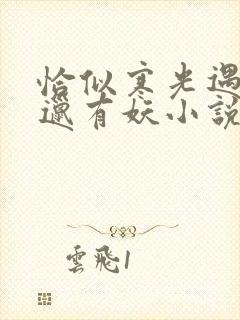 恰似寒光遇
邋有妖小說
雲飛1